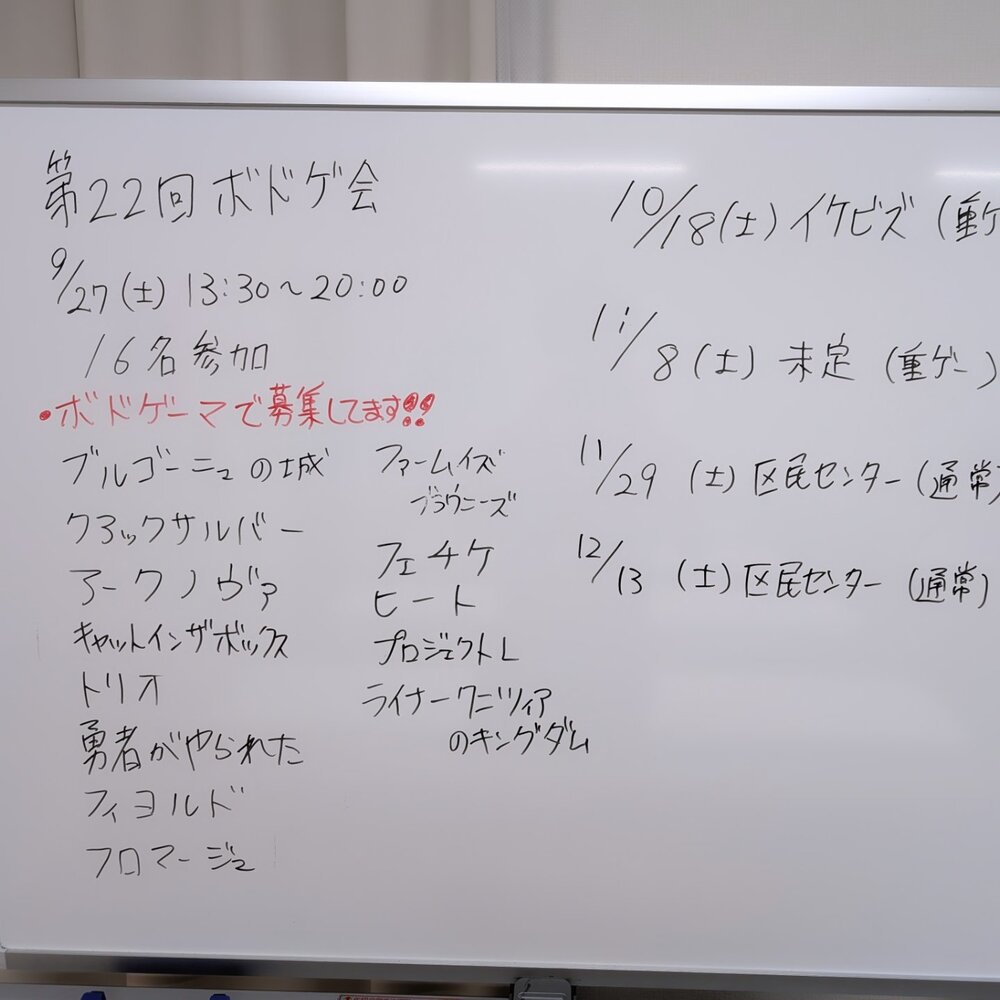 第22回ボドゲ会
9/27(土) 13:30〜20:00
16名参加
・ボドゲーマで募集してます!!
ブルゴーニュの城
クアックサルバー
アークノヴァ
キャットインザボックス
トリオ
勇者がやられた
フィヨルド
フロマージュ
ファームイズ
ブラウニーズ
フェチケ
ヒート
プロジェクトL
ライナークニツィア
のキングダム
10/18(土)イケビズ(重ゲ
11/8(土)未定(重ゲー)
11/29(土)区民センター(通常)
12/13(土)区民センター(通常)